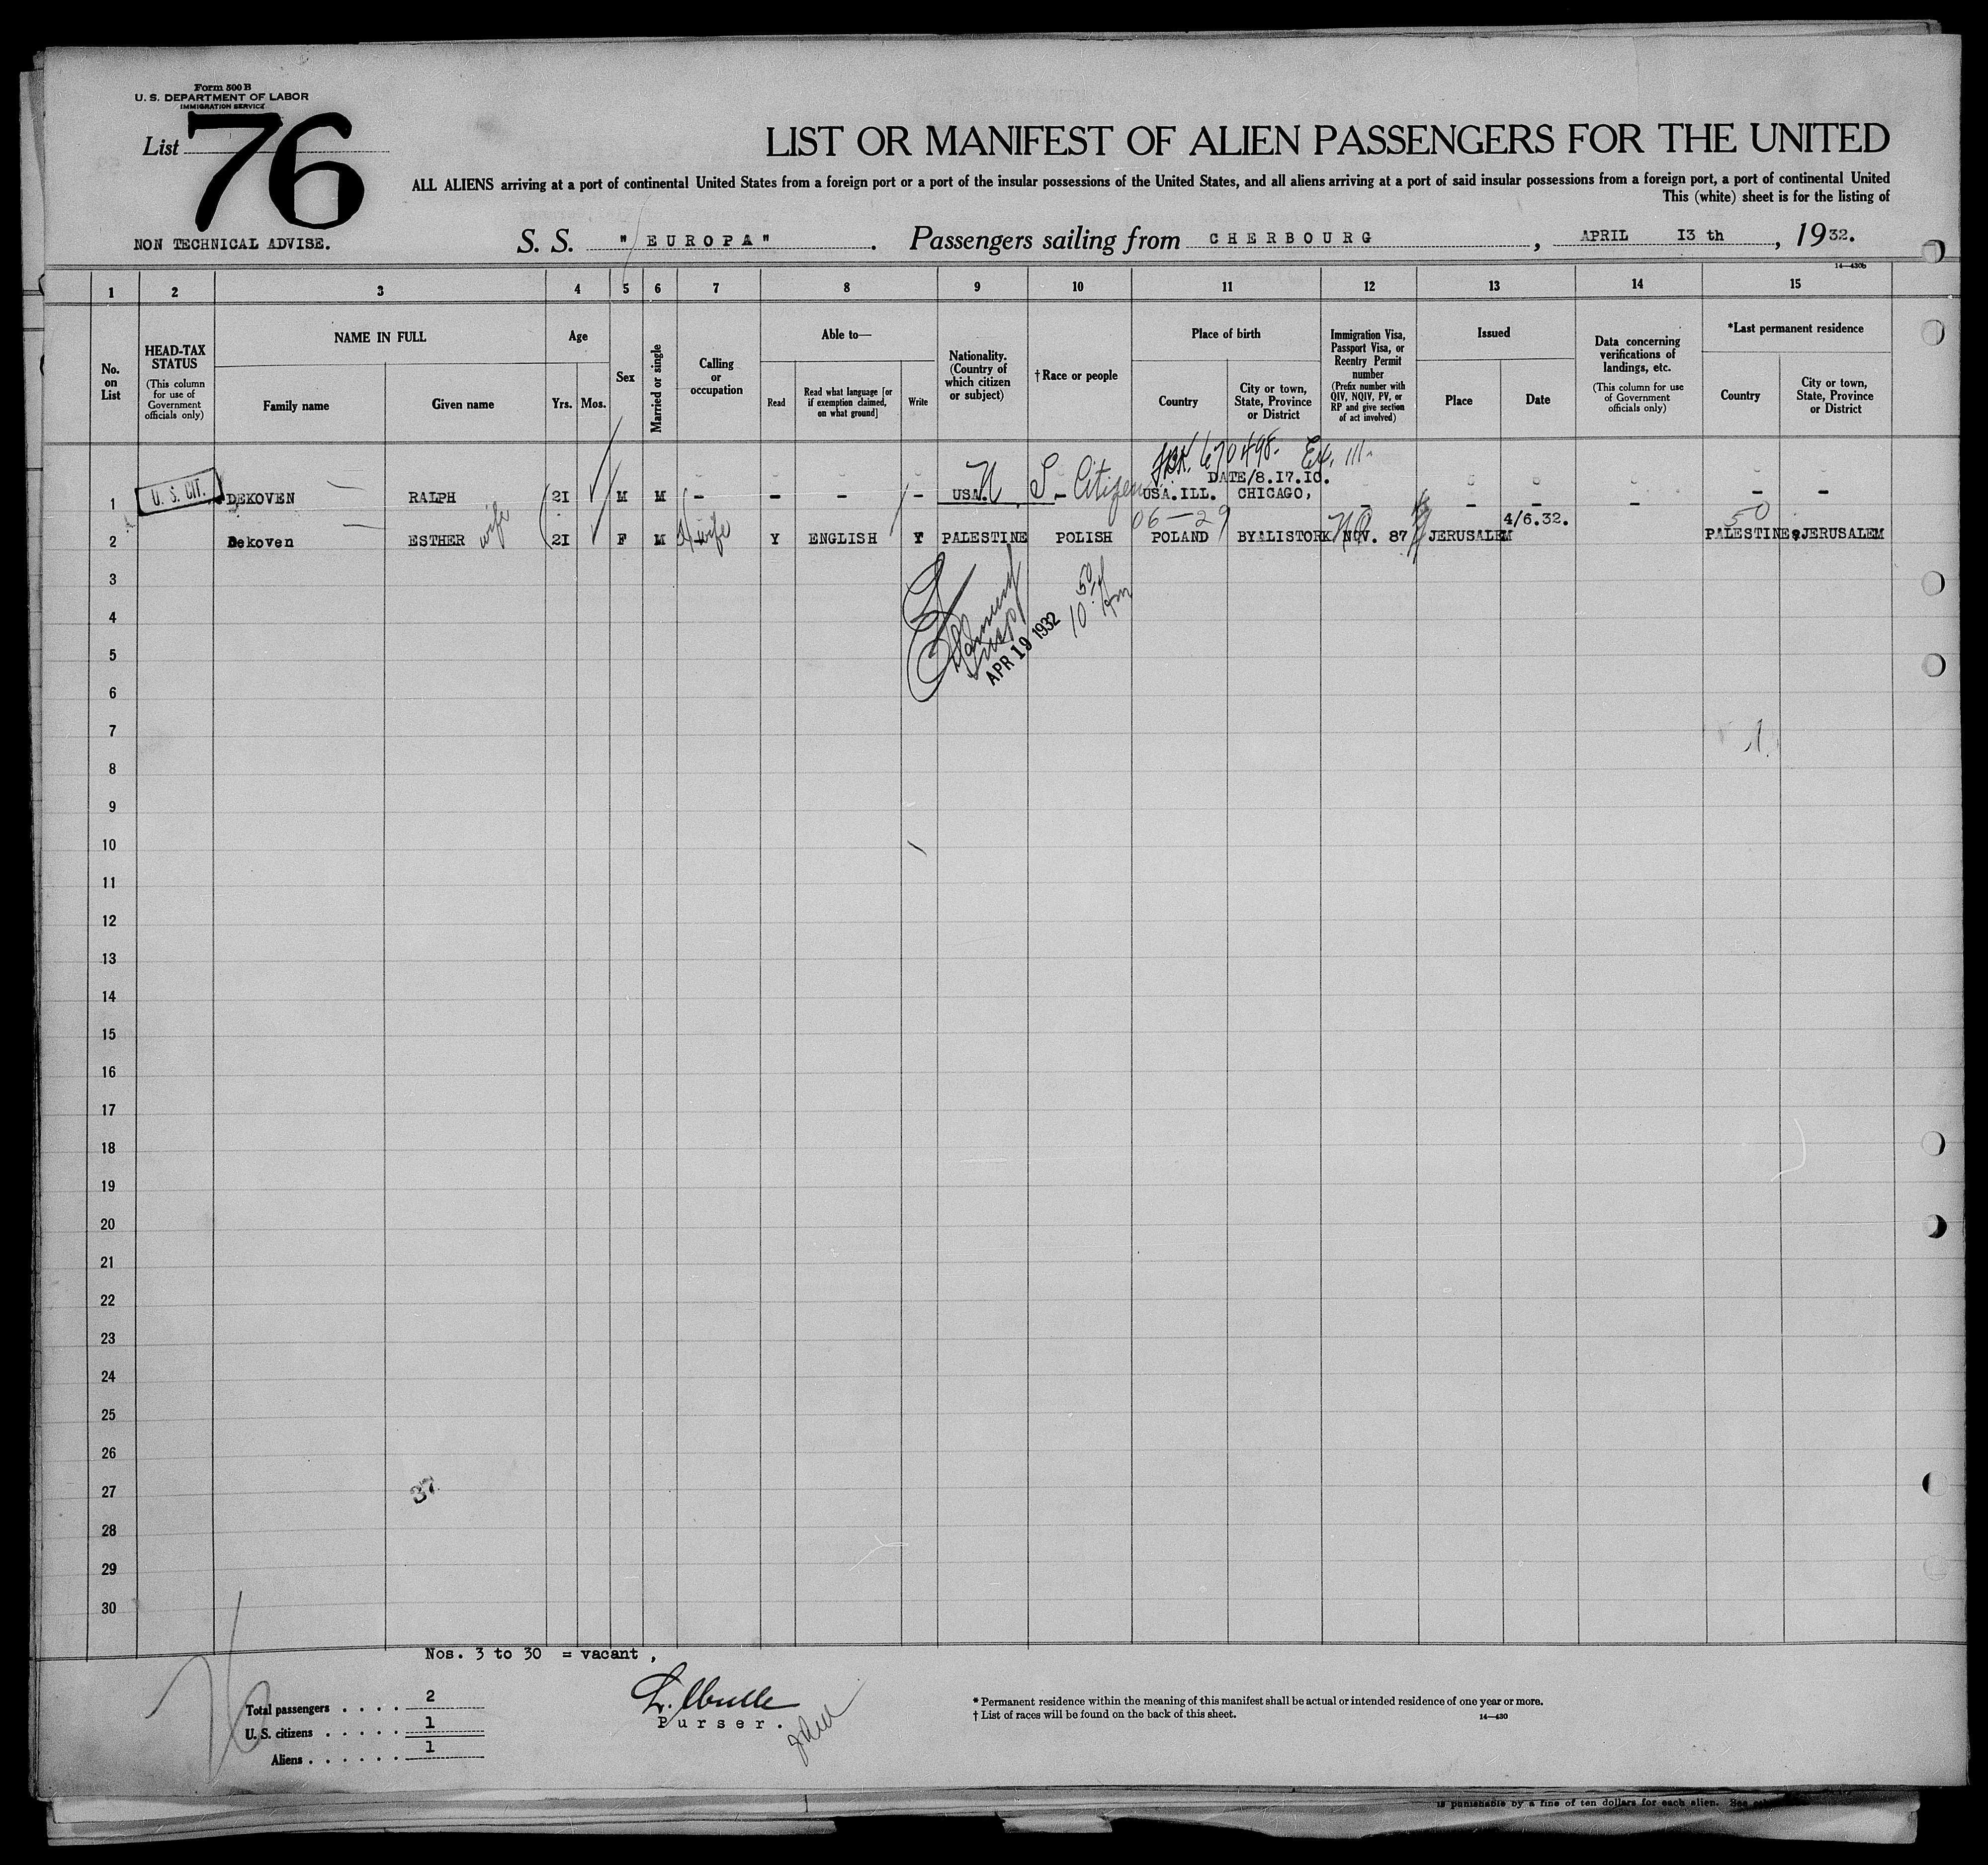 Form 500 B
U. S. DEPARTMENT OF LABOR
IMMIGRATION SERVICE
List 76
NON TECHNICAL ADVISE.
LIST OR MANIFEST OF ALIEN PASSENGERS FOR THE UNITED
ALL ALIENS arriving at a port of continental United States from a foreign port or a port of the insular possessions of the United States, and all aliens arriving at a port of said insular possessions from a foreign port, a port of continental United
This (white) sheet is for the listing of
S. S. "EUROPA". Passengers sailing from CHERBOURG, APRIL 13 th, 1932.
14—430b
1 2 3 4 5 6 7 8 9 10 11 12 13 14 15
No. on List
HEAD-TAX STATUS (This column for use of Government officials only)
NAME IN FULL
Family name
Given name
Age
Yrs. Mos.
Sex
Married or single
Calling or occupation
Able to—
Read
Read what language [or if exemption claimed, on what ground]
Write
Nationality. (Country of which citizen or subject)
† Race or people
Place of birth
Country
City or town, State, Province or District
Immigration Visa, Passport Visa, or Reentry Permit number (Prefix number with QIV, NQIV, PV, or RP and give section of act involved)
Issued
Place
Date
Data concerning verifications of landings, etc. (This column for use of Government officials only)
*Last permanent residence
Country
City or town, State, Province or District
670498.
DATE/8.17.10.
1 U. S. CIT. DEKOVEN RALPH 21 M M – – – – USA. S – Citizen USA. ILL. CHICAGO, – – – – – –
06—29 4/6.32. 50
2 Dekoven ESTHER wife 21 F M wife Y ENGLISH Y PALESTINE POLISH POLAND BYALISTORK NOV. 87 JERUSALEM PALESTINE JERUSALEM
3
4
APR 19 1932
5
6
7
8
9
10
11
12
13
14
15
16
17
18
19
20
21
22
23
24
25
26
27
37
28
29
30
Nos. 3 to 30 = vacant,
Total passengers . . . . 2
U. S. citizens . . . . . 1
Aliens . . . . . . 1
Purser.
76
* Permanent residence within the meaning of this manifest shall be actual or intended residence of one year or more.
† List of races will be found on the back of this sheet.
14—430
is punishable by a fine of ten dollars for each alien. See